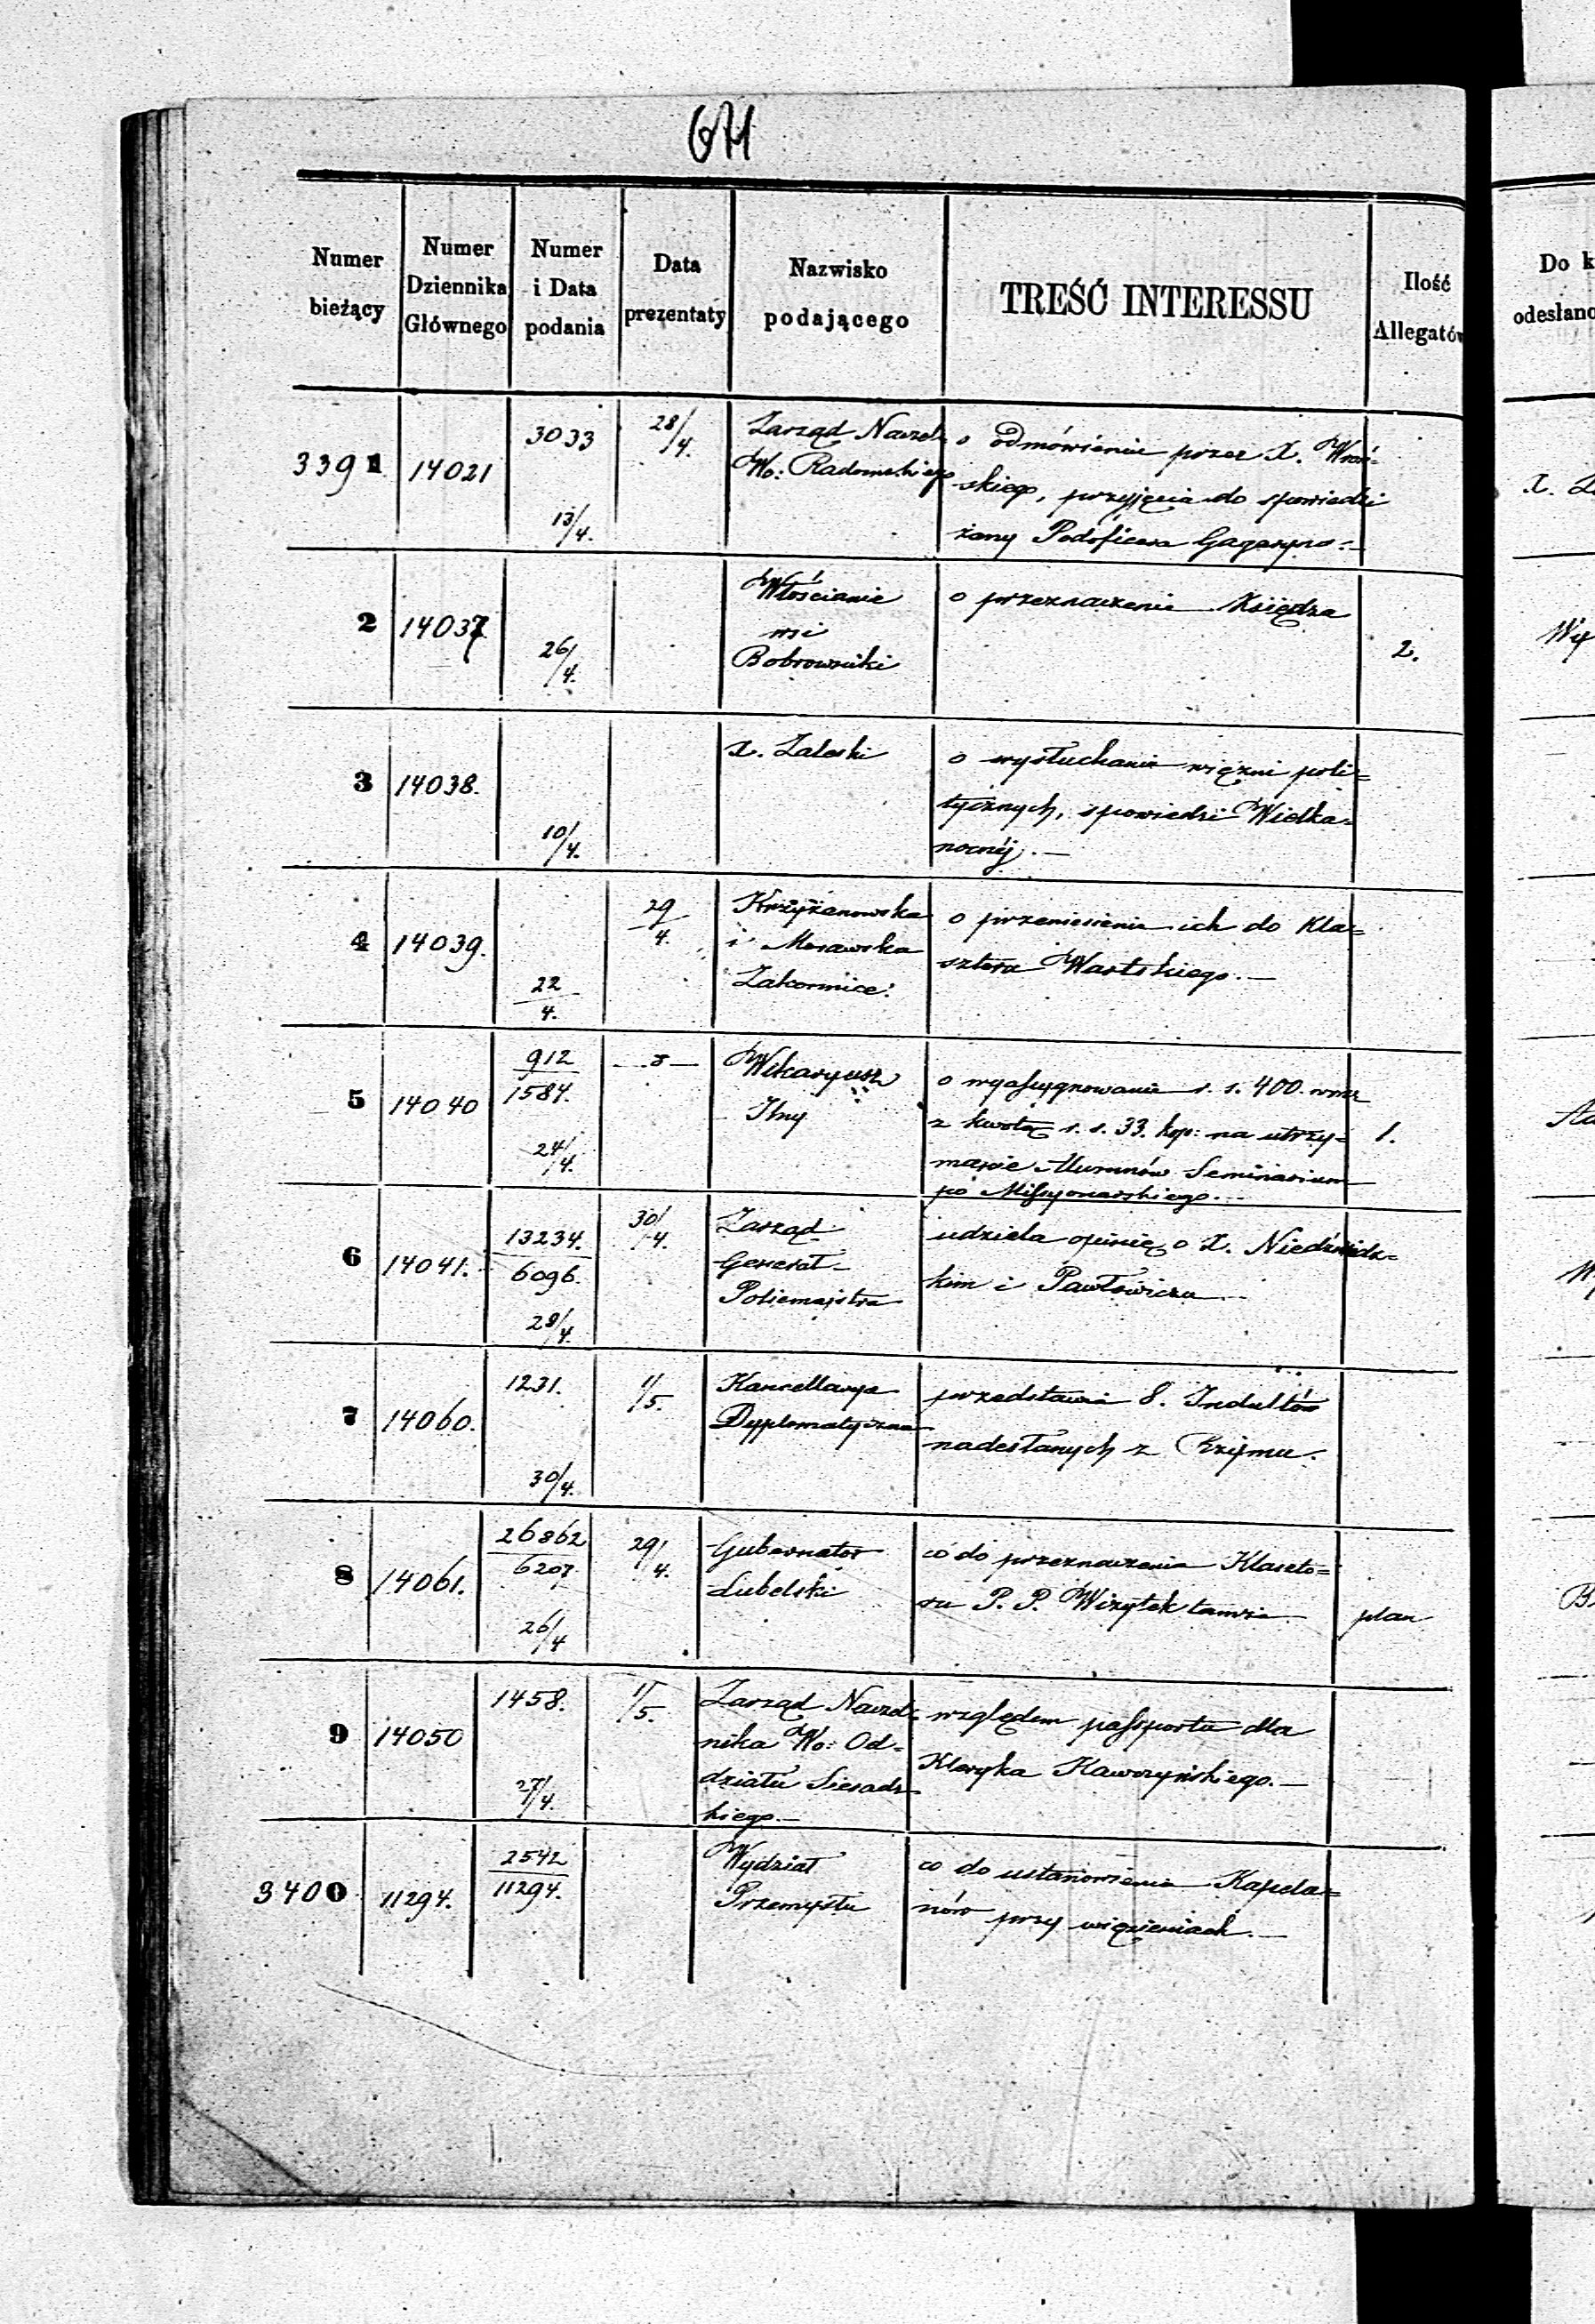 671
Numer
bieżący
Numer
Dziennika
Głównego
Numer
i Data
podania
Data
prezentaty
Nazwisko
podającego
TREŚĆ INTERESSU
Ilość
Allegatów
Do k
odesłano
3391
14021
3033
13/4.
28/4.
Zarząd Naczel:
Wo: Radomskiego
o odmówienie przez X. Wroń-
skiego, przyjęcia do spowiedzi
żony Podoficera
X.
2
14037
26/4.
Włościanie
wsi
Bobrowniki
o przeznaczenie Księdza
2.
3
14038.
10/4.
X. Zaleski
o wysłuchanie więźni poli=
tycznych, spowiedzi Wielka-
nocnéj. —
4
14039.
22/4.
29/4.
Krzyżanowska
i Morawska
Zakonnice:
o przeniesienie ich do Kla=
sztoru Wartskiego. —
5
14040
912
1584.
24/4.
Wikaryusz
Ilny
o wyassygnowanie r. s. 400. wraz
z kwotą r. s. 33. kop: na utrzy=
manie Alumnów Seminarium
po Missyonarskiego. —
1.
6
14041.
13234.
6096.
28/4.
30/4.
Zarząd
Generał-
Policmajstra
udziela opinię o X. Niedźwiedz-
kim i Pawłowiczu
7
14060.
1231.
30/4.
1/5.
Kancellarya
Dyplomatyczna
przedstawia 8. Indultów
nadesłanych z Rzymu.
8
14061.
26862
6207.
26/4
29/4.
Gubernator
Lubelski
co do przeznaczenia Klaszto=
ru P. P. Wizytek tamże
plan
9
14050
1458.
27/4.
1/5.
Zarząd Naczel-
nika Wo: Od-
działu Sieradz-
kiego. —
względem passportu dla
Kleryka Kaworzyńskiego. —
3400
11294.
2542
11294.
Wydział
Przemysłu
co do ustanowienia Kapela=
nów przy więzieniach. —